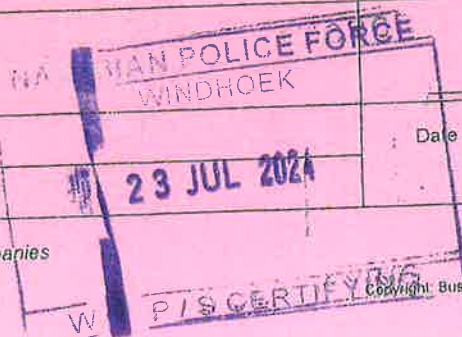 POLICE FORCE
WINDHOEK
Date
23 JUL 2024
panies
W P/S CERTIFYING
Copyright: Bus